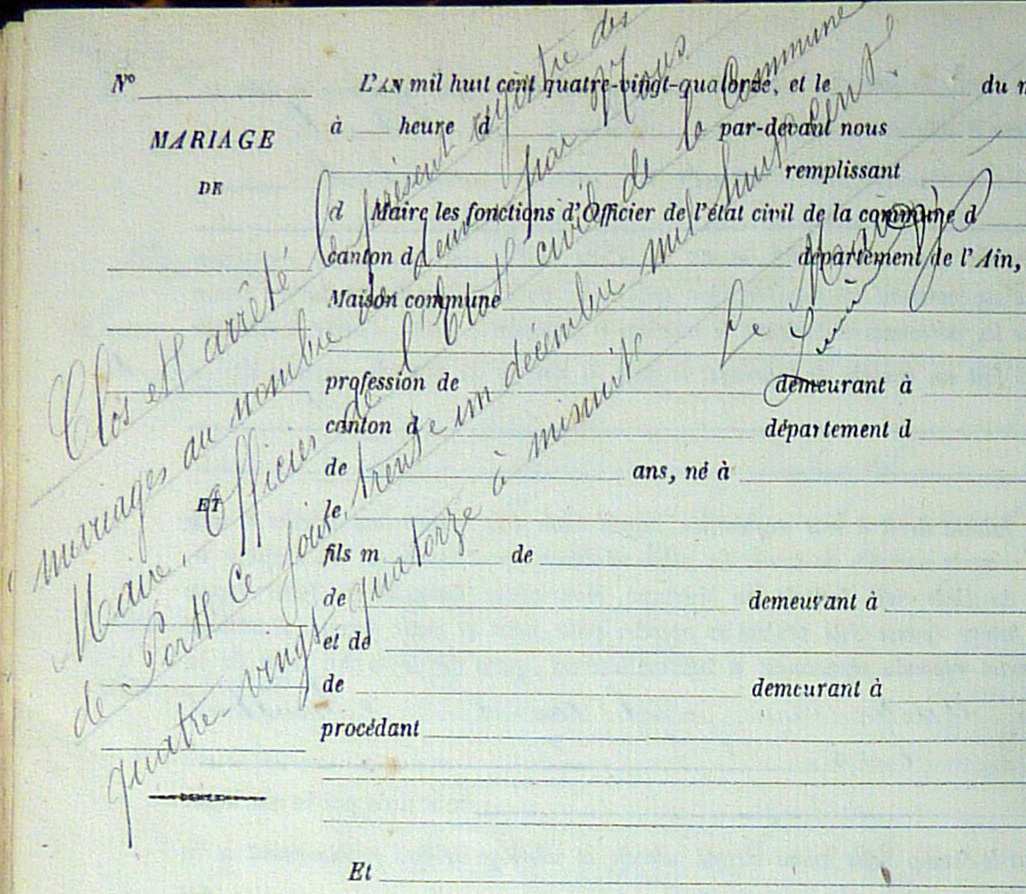 N°
MARIAGE
DE
ET
L'AN mil huit cent quatre-vingt-quatorze, et le du m
à heure d par-devant nous
remplissant
d Maire les fonctions d'Officier de l'état civil de la commune d
canton d département de l'Ain,
Maison commune
profession de demeurant à
canton d département d
de ans, né à
le
fils m de
de demeurant à
et de
de demeurant à
procédant
Et
Clos et arrêté le présent registre des
mariages au nombre de deux par Nous
Maire, Officier de l'Etat civil de la Commune
de Port ce jour trente un décembre mil huit cent
quatre vingt quatorze à minuit
Le Maire